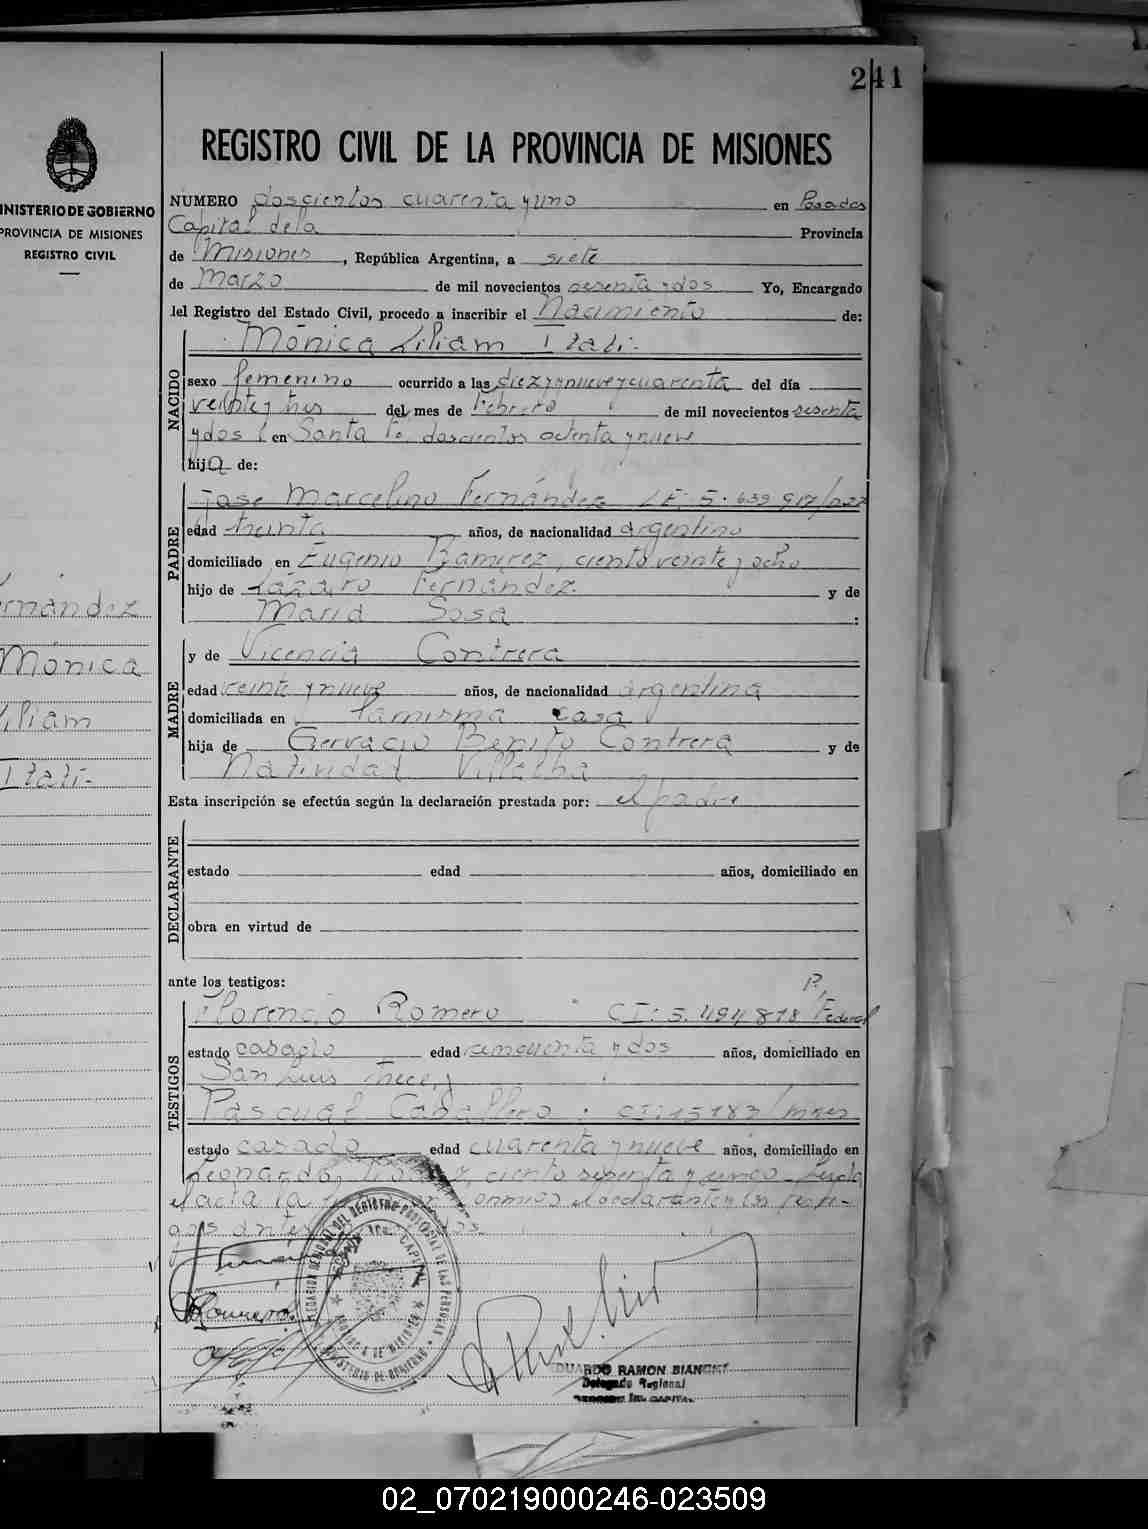 241
MINISTERIO DE GOBIERNO
PROVINCIA DE MISIONES
REGISTRO CIVIL
Fernández
Mónica
Liliam
Itatí-
REGISTRO CIVIL DE LA PROVINCIA DE MISIONES
NUMERO doscientos cuarenta y uno en Posadas
Capital de la Provincia
de Misiones, República Argentina, a siete
de Marzo de mil novecientos sesenta y dos Yo, Encargado
del Registro del Estado Civil, procedo a inscribir el Nacimiento de:
NACIDO
Mónica Liliam Itatí-
sexo femenino ocurrido a las diez y nueve y cuarenta del día
veinte y tres del mes de Febrero de mil novecientos sesenta
y dos en Santa Fe, doscientos ochenta y nueve
hija de:
PADRE
José Marcelino Fernández LE: 5.639.917
edad treinta años, de nacionalidad argentino
domiciliado en Eugenio Ramirez, ciento veinte y ocho
hijo de Lázaro Fernández y de
Maria Sosa :
MADRE
y de Vicencia Contrera
edad veinte y nueve años, de nacionalidad argentina
domiciliada en la misma casa
hija de Gervacio Benito Contrera y de
Natividad Villalba
Esta inscripción se efectúa según la declaración prestada por: el padre
DECLARANTE
estado edad años, domiciliado en
obra en virtud de
ante los testigos:
TESTIGOS
Florencio Romero CI: 5.494.878 P. Federal
estado casado edad cincuenta y dos años, domiciliado en
San Luis trece y
Pascual Caballero. CI: 15183/mnes
estado casado edad cuarenta y nueve años, domiciliado en
Leonardo ciento sesenta y cinco Leída
el acta la conmigo el declarante y los testi-
gos antes
Romero
EDUARDO RAMON BIANCHI
Delegado Regional
02_070219000246-023509